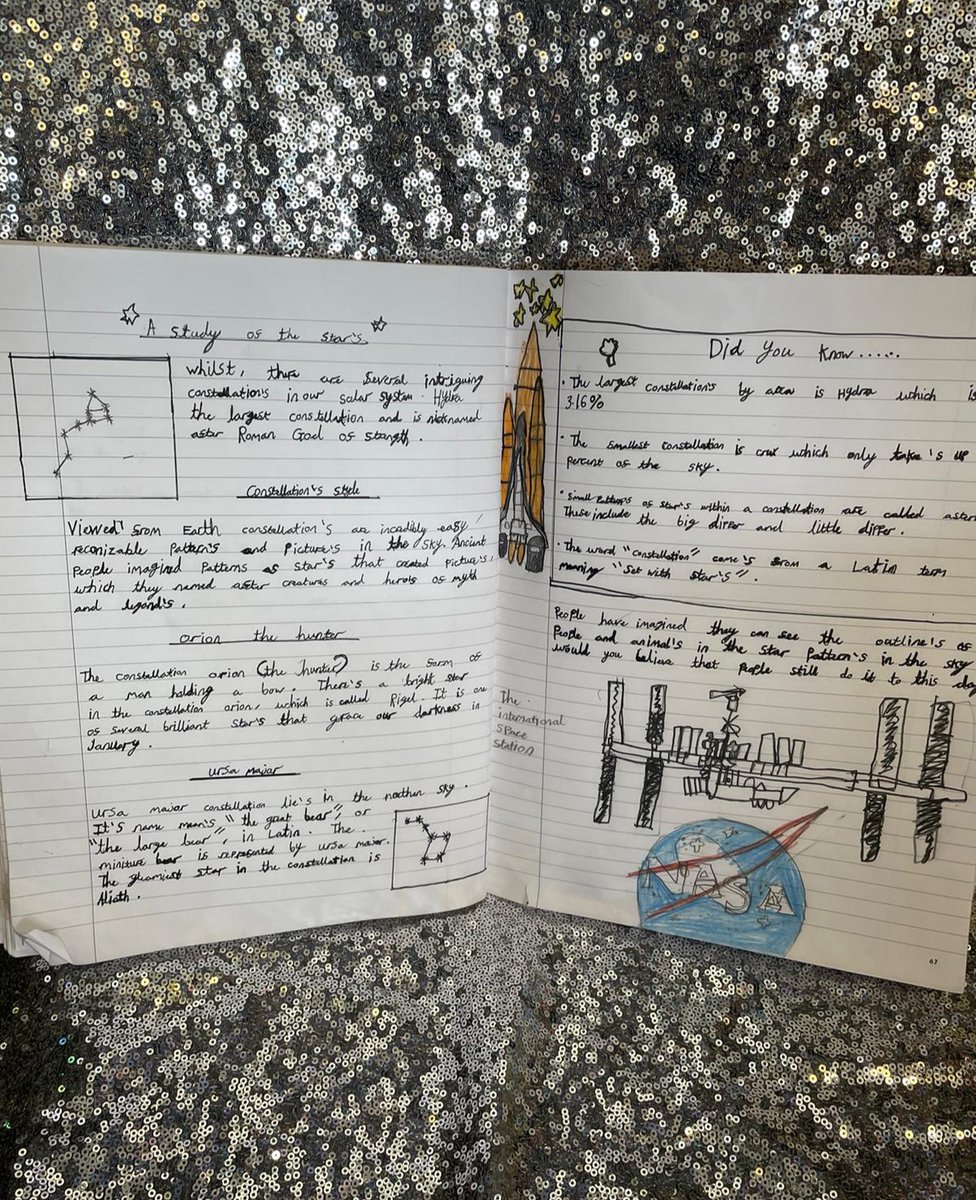 A study of the star's
whilst, there are several intriguing
constellation's in our solar system. Hydra
the largest constellation and is nicknamed
after Roman God of
Constellation's style
Viewed from Earth constellation's are incredibly easy
reconizable Pattern's and Picture's in the sky. Ancient
People imagined Patterns of star's that created picture's,
which they named after creatures and hero's of myth
and legend's.
orion the hunter
The constellation orion (the hunter) is the form of
a man holding a bow. There's a bright star
in the constellation orion, which is called Rigel. It is one
of several brilliant star's that grace our darkness in
January.
ursa major
ursa major constellation lie's in the northen sky.
It's name mean's "the great bear", or
"the large bear", in Latin. The
miniture bear is represented by ursa major.
The gleamiest star in the constellation is
Alioth.
Did You Know......
• The largest constellation's by area is Hydra which is
3.16%
• The smallest constellation is crux which only take's up
percent of the sky.
• Small Patterns of star's within a constellation are called aster
These include the big differ and little differ.
• The word "constellation" came's from a Latin term
meaning "set with star's".
People have imagined they can see the outline's of
People and animal's in the star Pattern's in the sky
would you believe that people still do it to this day
The
international
SPace
station
NASA
67